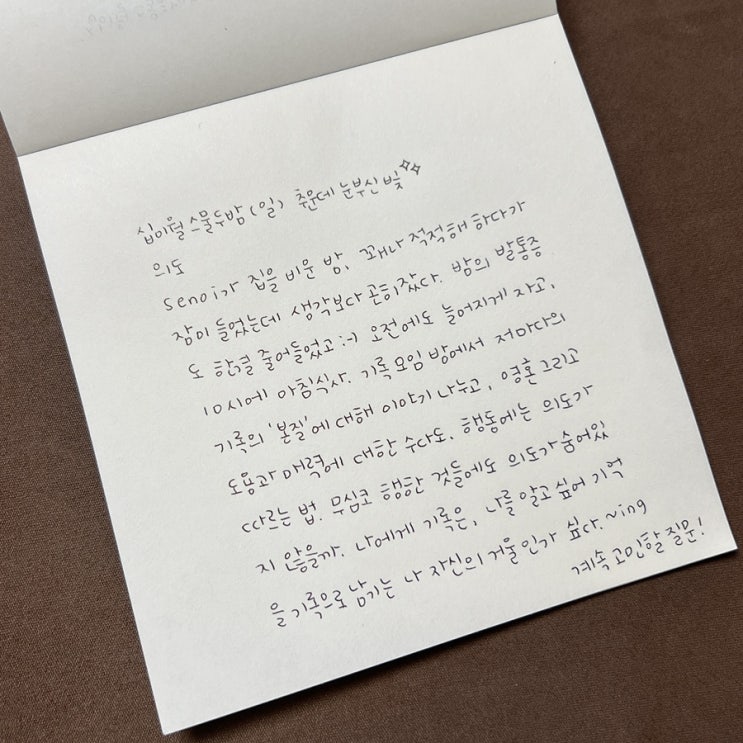 십이월 스물두밤 (일) 추운데 눈부신 빛
의도
senoi가 집을 비운 밤, 꽤나 적적해 하다가
잠이 들었는데 생각보다 곤히 잤다. 밤의 발통증
도 한결 줄어들었고 :-) 오전에도 늘어지게 자고,
10시에 아침식사. 기록모임 방에서 저마다의
기록의 '본질'에 대해 이야기 나누고, 영혼 그리고
도용과 매력에 대한 수다도. 행동에는 의도가
따르는 법. 무심코 행한 것들에도 의도가 숨어있
지 않을까. 나에게 기록은, 나를 알고 싶어 기억
을 기록으로 남기는 나 자신의 거울인가 싶다. ~ing
계속 고민할 질문!